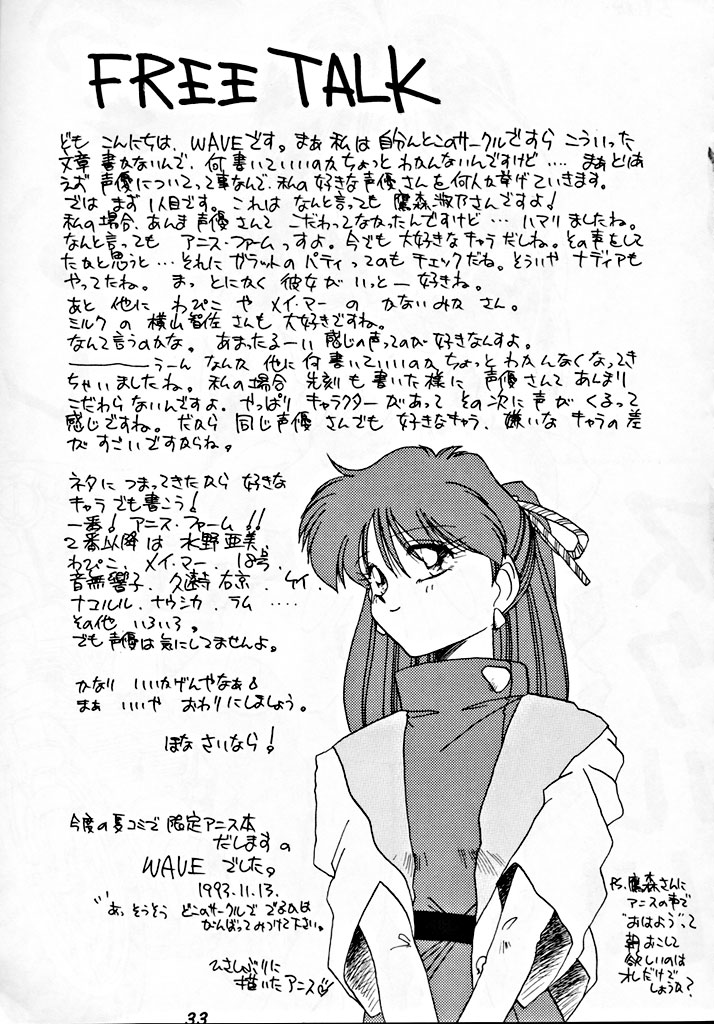 FREE TALK
ども こんにちは、WAVEです。まぁ 私は 自分んとこのサークルですら こういった
文章 書かないんで、何 書いていいのか ちょっと わかんないんですけど‥‥ まぁ とりあ
えず 声優についてって事なんで、私の 好きな 声優さんを 何人か 挙げていきます。
では まず 1人目です。これは なんと言っても 鷹森淑乃さんですよ！
私の場合、あんま 声優さんて こだわってなかったんですけど… ハマりましたね。
なんと言っても アニス・ファームっすよ。今でも 大好きな キャラだしね。その声をして
たかと思うと…それに ガラットの パティ ってのも チェックだね。そういや ナディアも
やってたね。 まっ とにかく 彼女が いっとー 好きね。
あと 他に わぴこ や メイ・マー の かないみか さん。
ミルク の 横山智佐 さんも 大好きですね。
なんて言うのかな。あまったるーい 感じの声ってのが 好きなんすよ。
――――うーん なんか 他に何 書いていいのか ちょっと わかんなくなってき
ちゃいましたね。私の場合 先刻も 書いた様に 声優さんて あんまり
こだわらないんですよ。やっぱり キャラクターがあって その次に 声が くるって
感じですね。だから 同じ声優 さんでも 好きなキャラ、嫌いな キャラの差
が すごいですからね。
ネタに つまってきたから 好きな
キャラ でも書こう！
一番！ アニス・ファーム！！
2番以降は 水野 亜美、
わぴこ、メイ・マー、18号、
音無 響子、久遠寺 右京、ケイ、
ナコルル、ナウシカ、ラム ‥‥
その他 いろいろ。
でも 声優は 気にしてませんよ。
かなり いいかげんやなぁ
まぁ いいや おわりにしましょう。
ほな さいなら！
今度の夏コミで 限定アニス本
だします の
WAVE でした。
1993.11.13.
“あ、そうそう どこのサークルで でるかは
がんばってみつけて下さい。
ひさしぶりに
描いた アニス
P.S. 鷹森さんに
アニスの声で
“おはよう”って
朝 おこして
欲しいのは
オレだけで
しょうか？
33